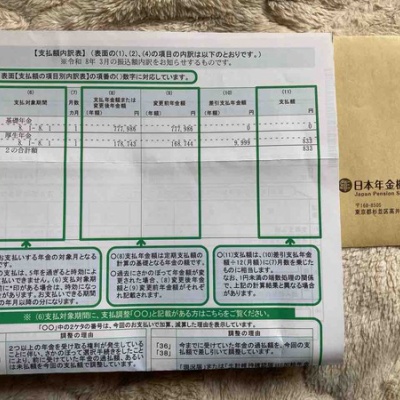 【支払額内訳表】(表面の(1)、(2)、(4)の項目の内訳は以下のとおりです。)
※令和 8年 3月の振込額内訳をお知らせするものです。
表面【支払額の項目別内訳表】の項番の()数字に対応しています。
(6) (7) (8) (9) (10) (11)
支払対象期間 月数 支払年金額または変更後年金額 変更前年金額 差引支払年金額 支払額
カ月 (年額) 円 (年額) 円 (年額) 円 円
基礎年金
8. 1- 8. 1 1 777,986 777,986 0 0
厚生年金
8. 1- 8. 1 1 178,743 168,744 9,999 833
2の合計額 833
日本年金機
Japan Pension S
〒168-8505
東京都杉並区高井
お支払いする年金の対象月となる
支払は、5年を過ぎると時効によ
○(8)支払年金額は定期支払額の計算の基礎となる年金の額です。
○過去にさかのぼって年金額が変更された場合、(8)変更後年金額と(9)変更前年金額がそれぞれ記載されます。
○(11)支払額は、(10)差引支払年金額÷12(月額)に(7)月数を乗じたものに相当します。
なお、1円未満の端数処理の関係で、上記の計算結果と異なる場合があります。
※(6)支払対象期間に、支払調整《○○》と記載がある方はこちらをご覧ください。
「○○」中の2ケタの番号は、今回のお支払いで加算、減算した理由を表示しています。
調整の理由 調整の理由
2つ以上の年金を受け取る権利が発生している
ことに伴い、さかのぼって選択手続きをしたこと
により、前に受けていた年金の過払額、あるい
は未払額を今回の支払額で調整しています。
「36」
「38」
今までに受けていた年金に過払額がある場合、今回の
支払額で差し引いて調整しています。